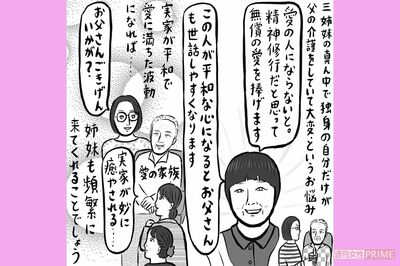 三姉妹の真ん中で独身の自分だけが
父の介護をしていて大変…というお悩み
愛の人にならないと。
精神修行だと思って
無償の愛を捧げます
この人が平和な心になるとお父さん
も世話しやすくなります
実家が平和で
愛に満ちた波動
になれば…
お父さんごきげん
いかが?
愛の家族
実家が妙に
癒やされる…
姉妹も頻繁に
来てくれることでしょう
週刊女性PRIME